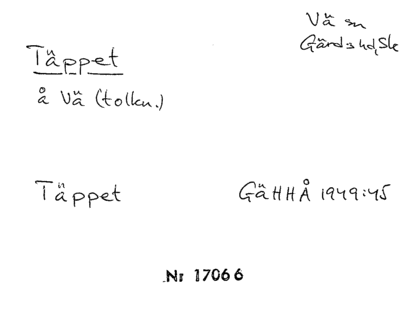 Vä sn
Gärds hd, Sk
Täppet
å Vä (tolkn.)
Täppet GäHHÅ 1949:45
Nr 17066